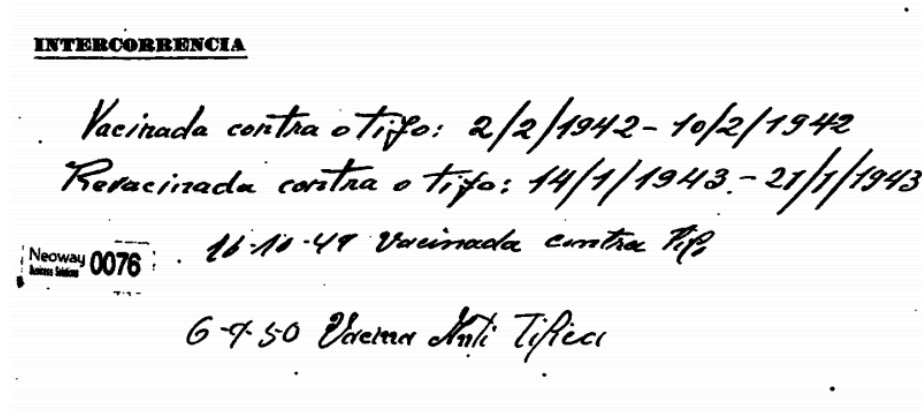 INTERCORRENCIA
Vacinada contra o tifo: 2/2/1942 - 10/2/1942
Revacinada contra o tifo: 14/1/1943. - 21/1/1943
Neoway 0076
Business Solutions
Vacinada contra Tifo
Vacina Anti Tifica